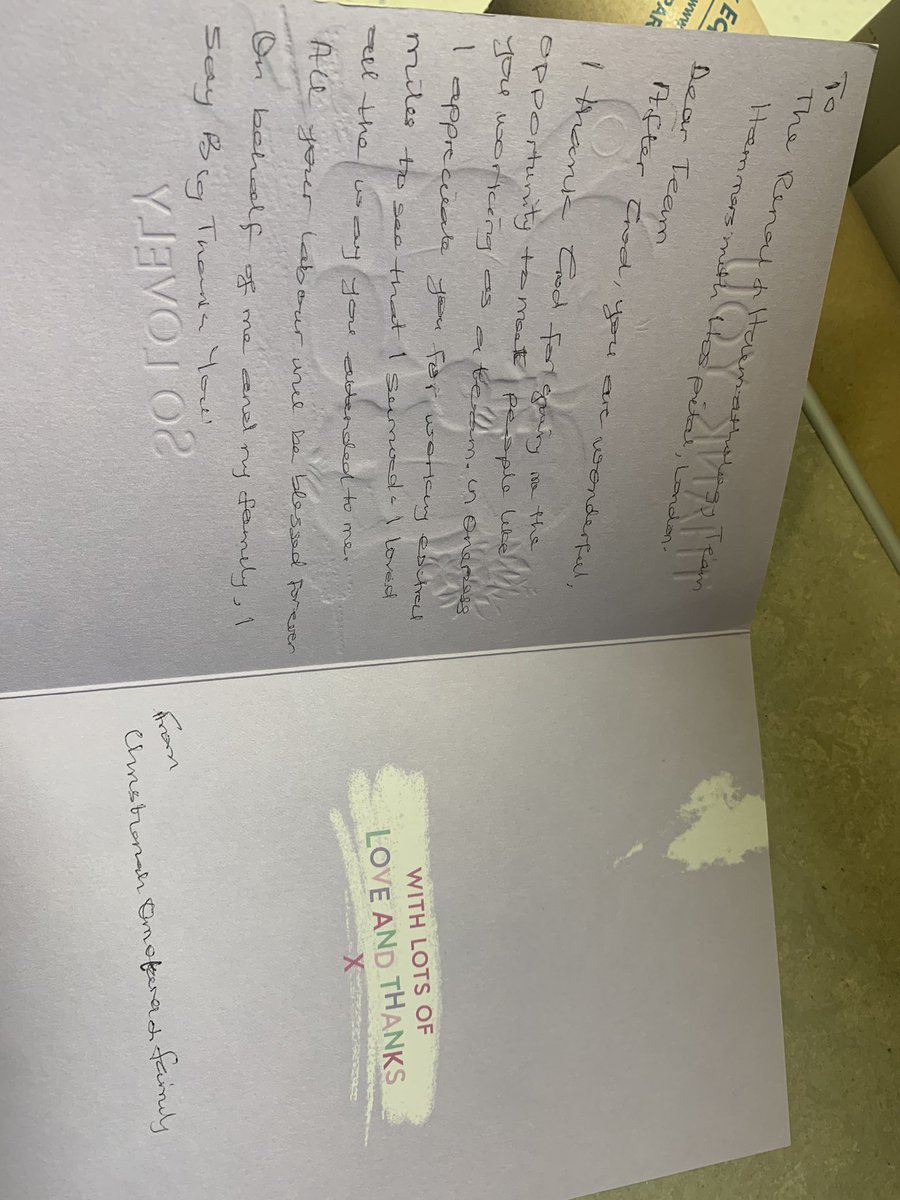 To
The Renal & Haemathology Team
Hammersmith Hospital, London.
Dear Team
After God, you are wonderful,
I thank God for giving me the
opportunity to meet people like
you working as a team. in Oneness
I appreciate you for working extra
miles to see that I survived. I loved
all the way you attended to me.
All your labour will be blessed forever
On behalf of me and my family, I
Say Big Thank You!
THANK YOU
SO LOVELY
WITH LOTS OF
LOVE AND THANKS
X
From
Christianah & family
www.